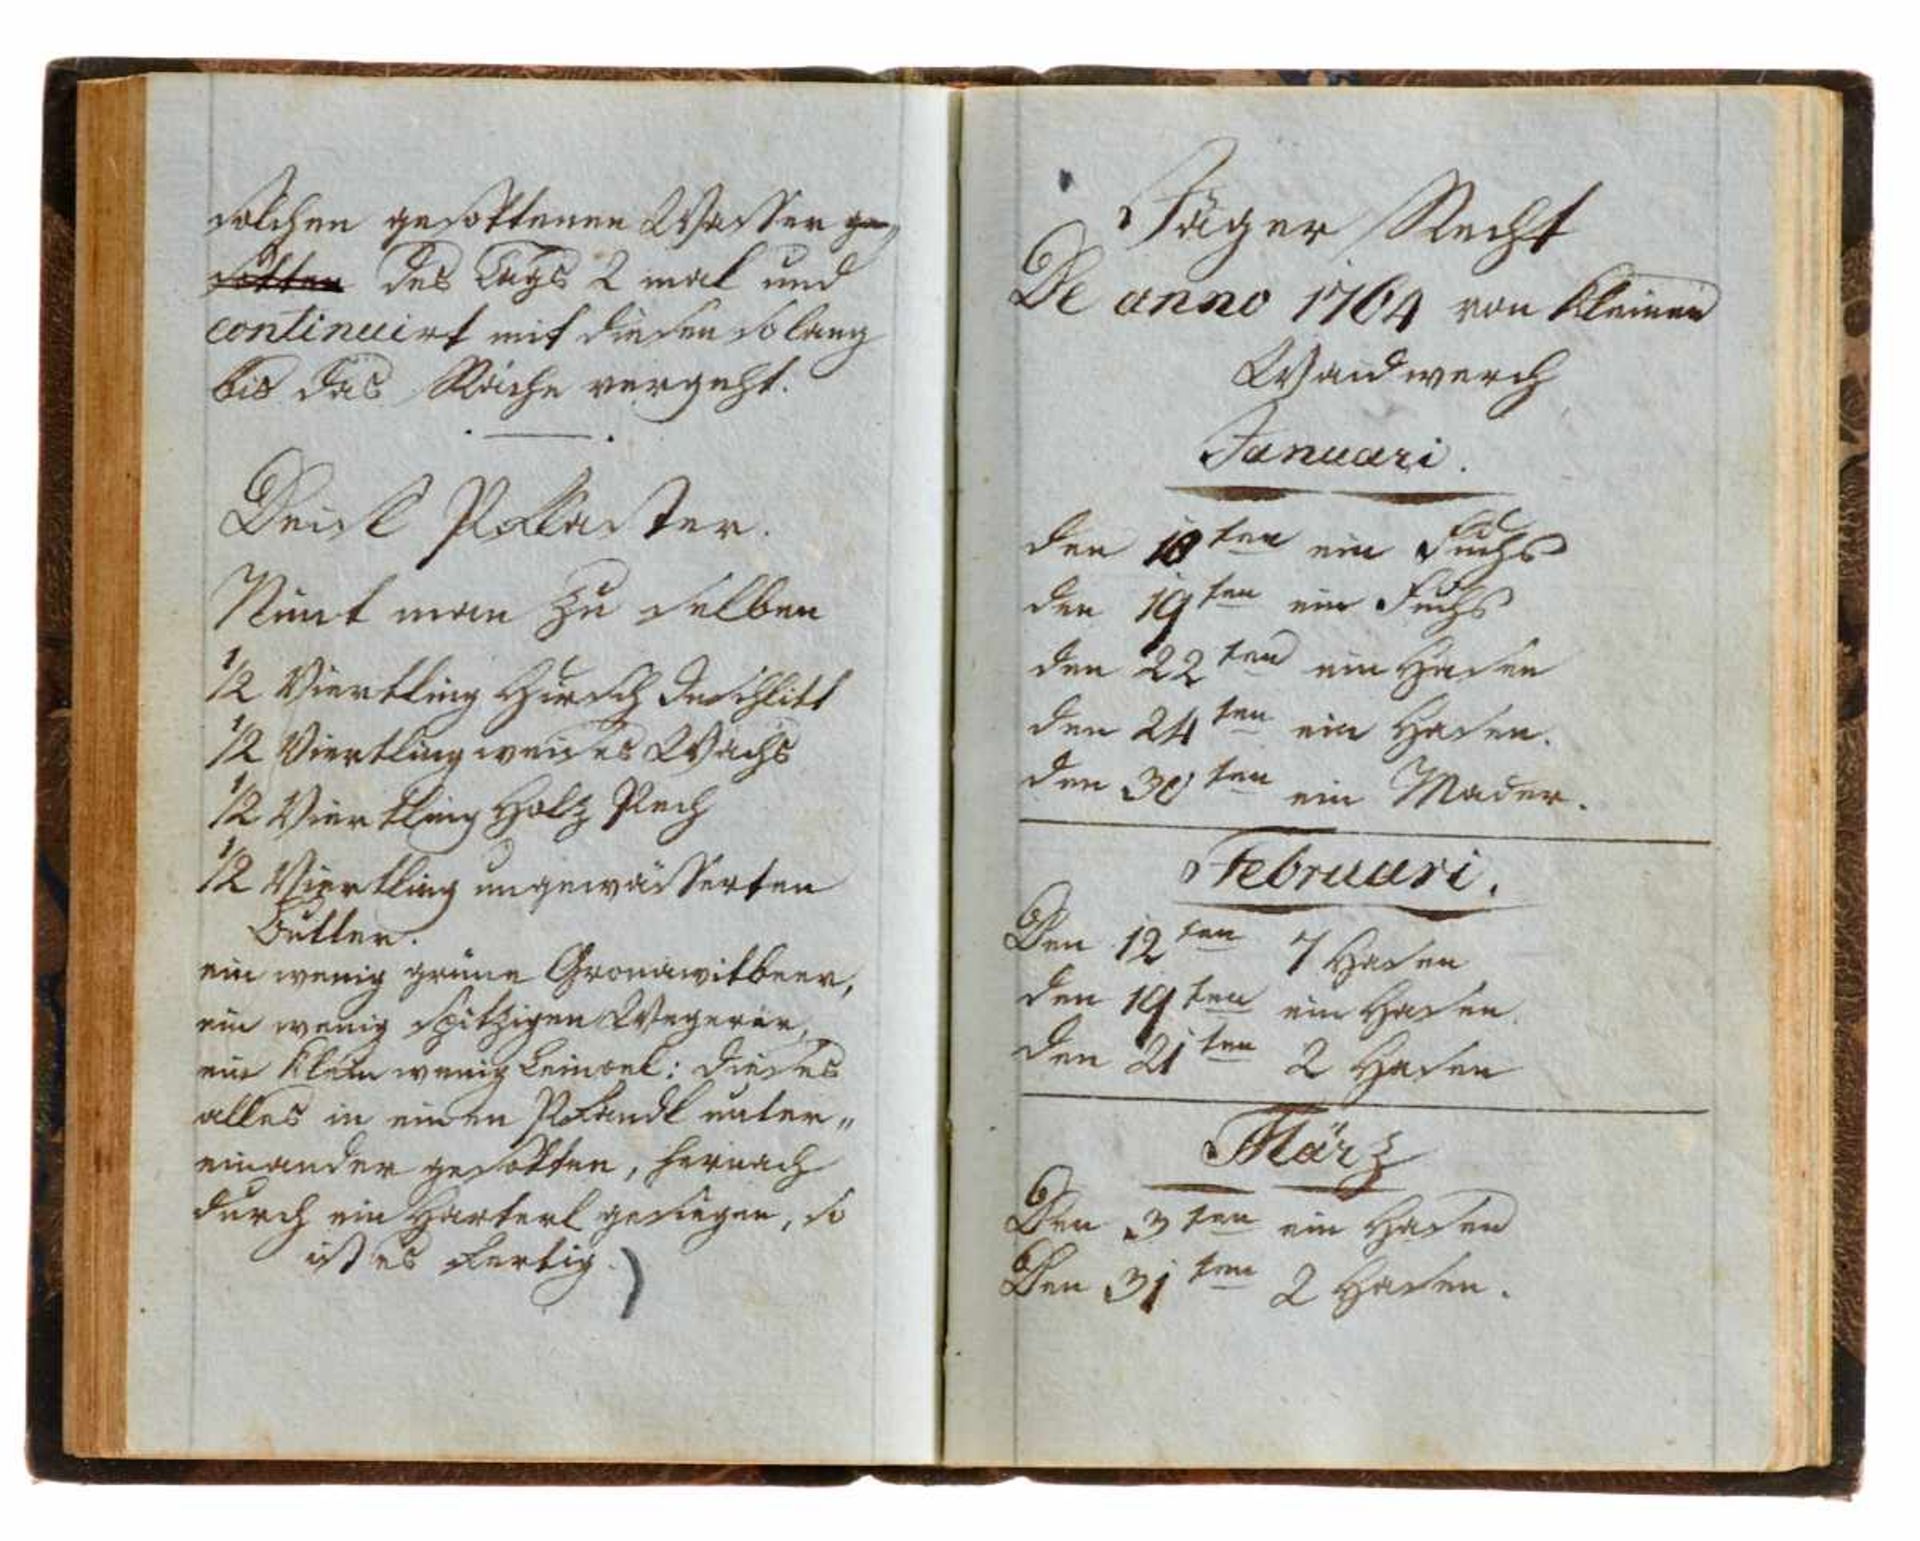 solchen gesottenen Wasser ge-
sotten des Tags 2 mal und
continuirt mit diesen so lang
bis das Räche vergeht.
Deisl Pflaster.
Nimt man zu selben
1/2 Viertling Hirsch Inschlitt
1/2 Viertling weises Wachs
1/2 Viertling Holz Pech
1/2 Viertling ungewässerten
Butter.
ein wenig grüne Gronawitbeer,
ein wenig spitzigen Wegerer,
ein klein wenig Leinoel: dieses
alles in einen Pfandl unter„
einander gesotten, hernach
durch ein Harterl gesiegen, so
ist es fertig.
Jäger Recht
De anno 1764 von kleinen
Waidwerch
Januari.
den 18ten ein Fuchs
den 19ten ein Fuchs
den 22ten ein Hasen
den 24ten ein Hasen.
den 30ten ein Mader.
Februari.
Den 12ten 7 Hasen
den 19ten ein Hasen
den 21ten 2 Hasen
März
Den 3ten ein Hasen
Den 31ten 2 Hasen.